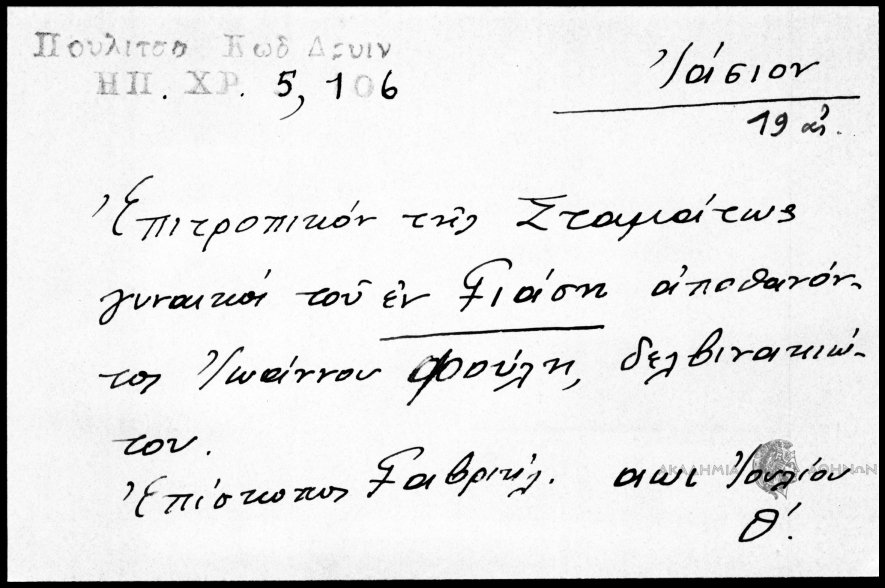 Πουλιτσα Κωδ Δρυιν
ΗΠ. ΧΡ. 5, 106
Ἰάσιον
19 αἰ.
Ἐπιτροπικόν τῆς Σταμάτως
γυναικός τοῦ ἐν Γιάση ἀποθανόν-
τος Ἰωάννου Φούλη, δελβινακιώ-
του.
Ἐπίσκοπος Γαβριήλ. αωι Ἰουλίου
Θ΄.
ΑΚΑΔΗΜΙΑ ΑΘΗΝΩΝ